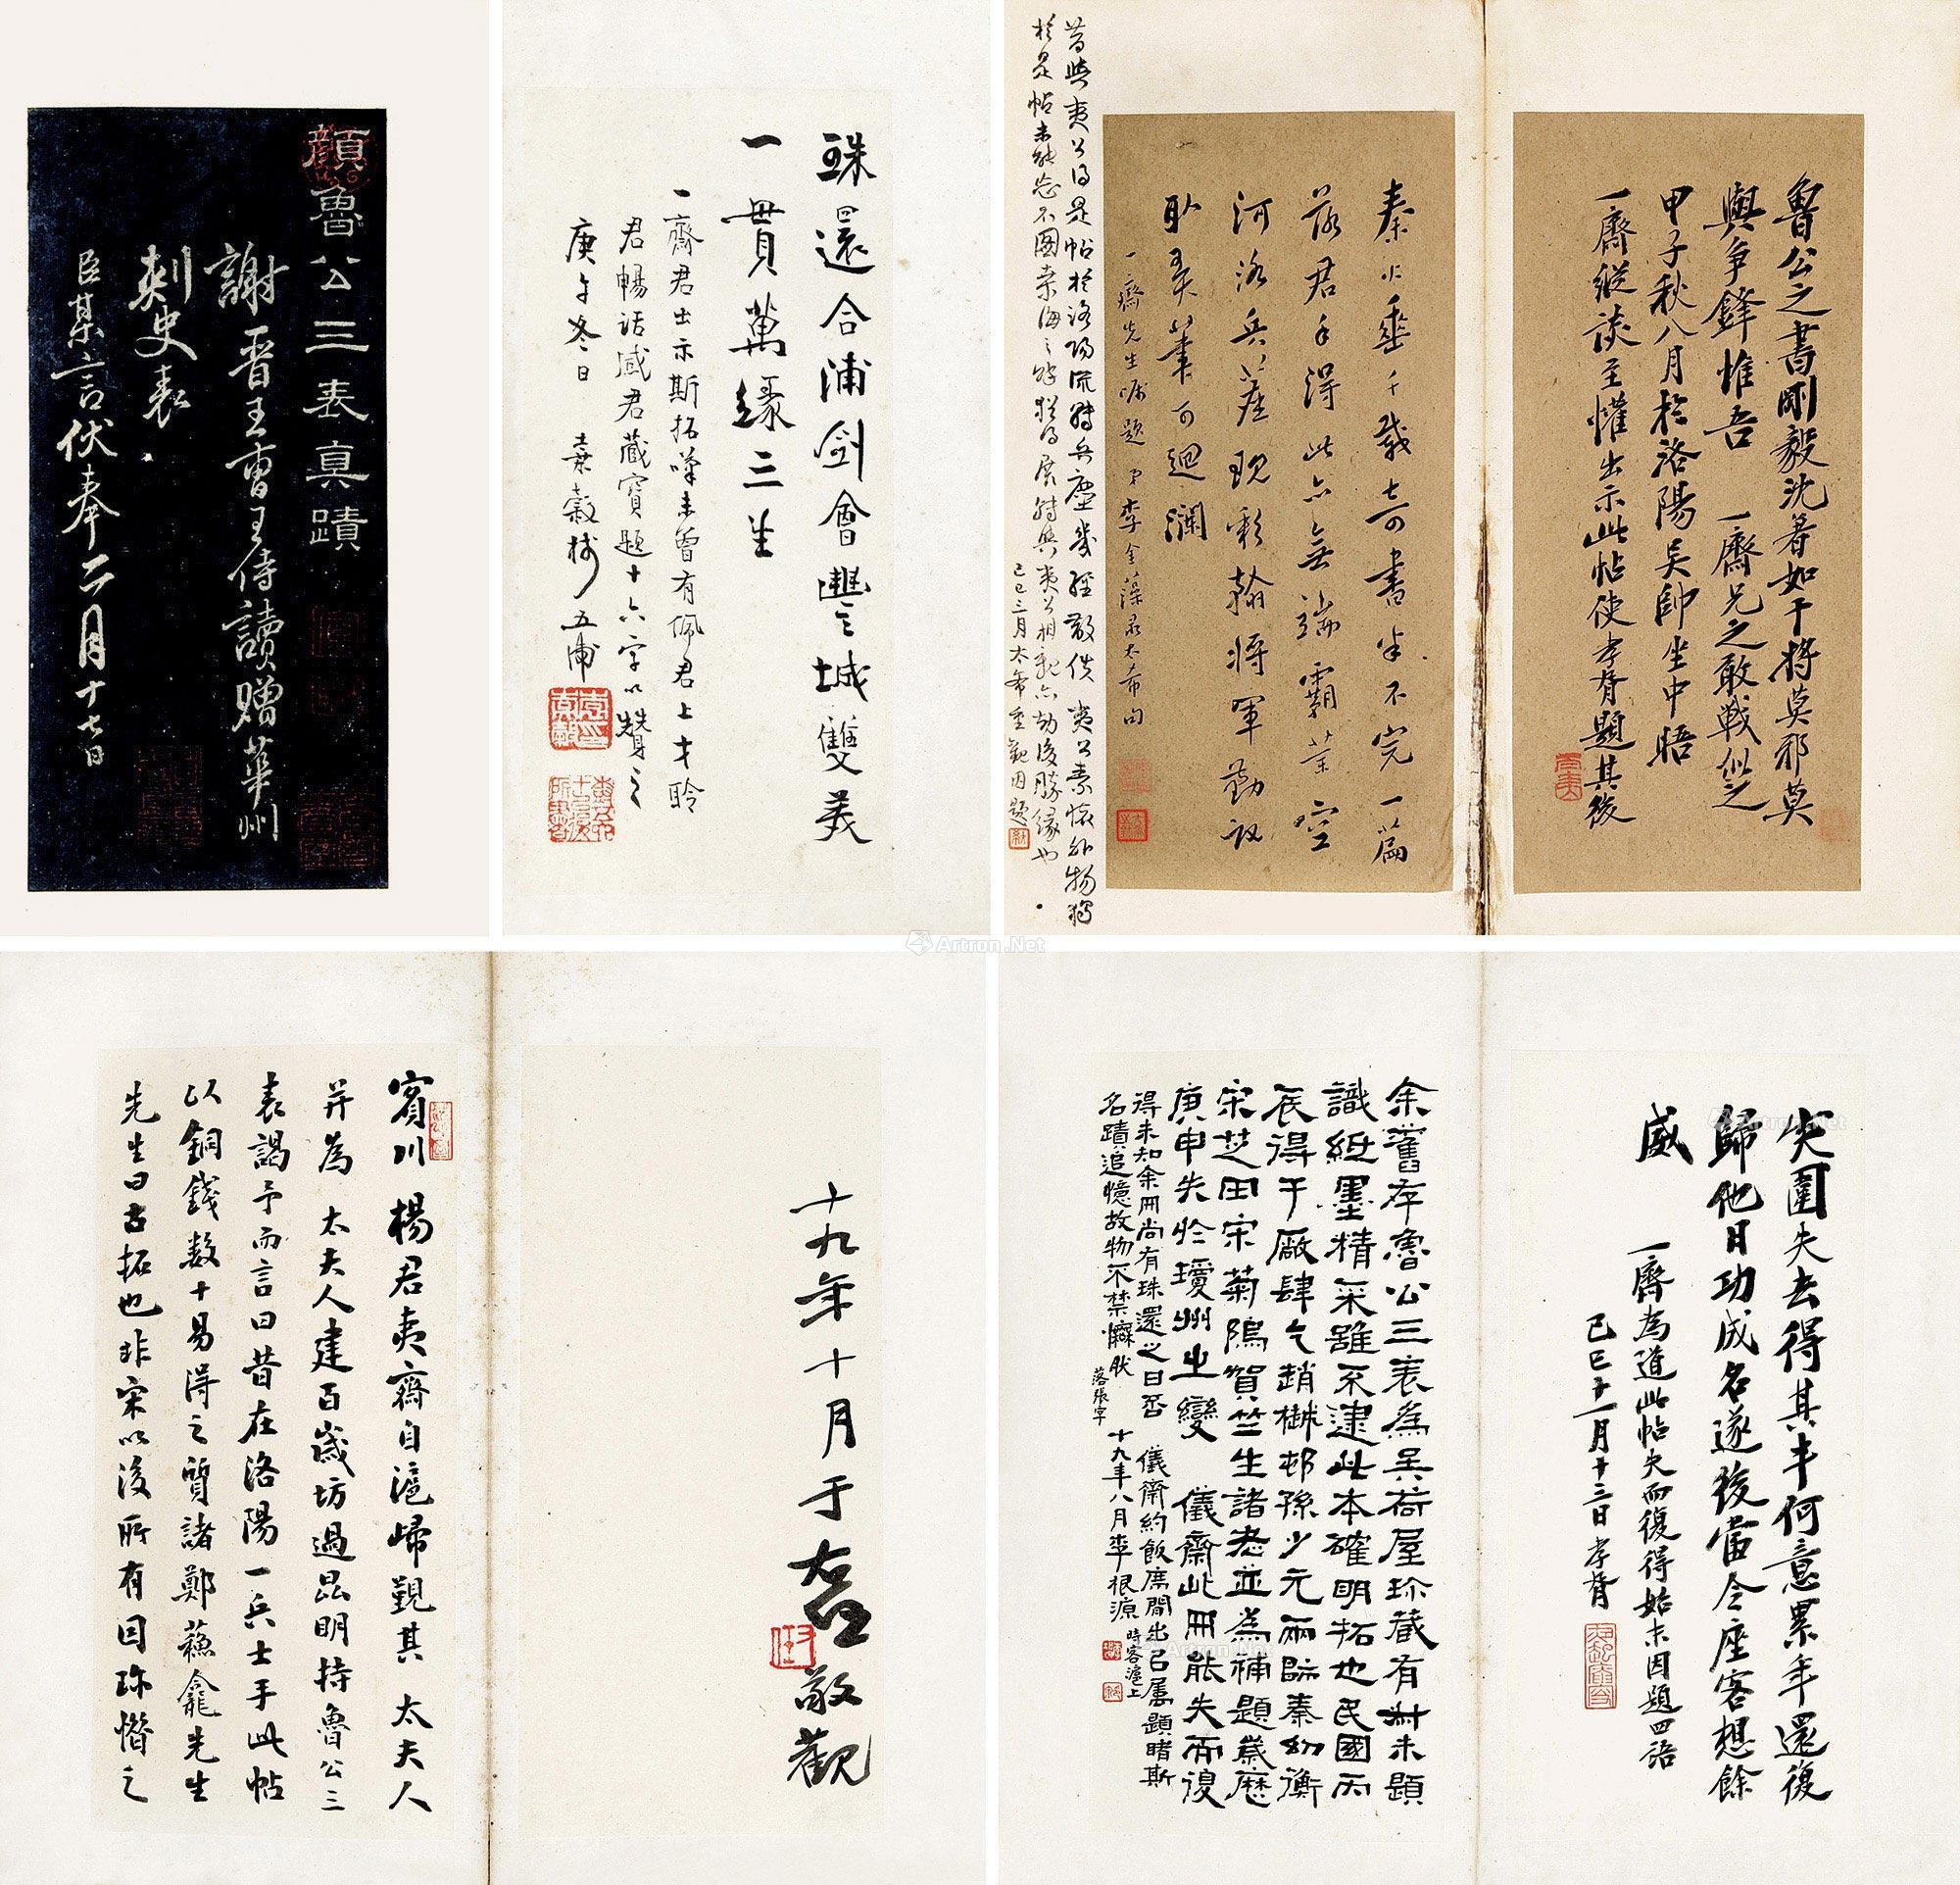 顏魯公三表真蹟
謝晉王曾王侍讀贈華州
刺史表
臣某言伏奉二月十七日
珠還合浦劍會豐城雙美
一貫萬緣三生
一齋君出示斯拓嘆未曾有佩君上才聆
君暢話感君藏寶題十六字以贊之
庚午冬日 袁穀
魯公之書剛毅沈著如干將莫邪莫
與爭鋒惟吾 一齋兄之敢戰似之
甲子秋八月於洛陽吳帥坐中晤
一齋縱談至懽出示此帖使孝胥題其後
秦火垂千載奇書半不完一篇
落君手得此亦無端霸業空
河洛兵塵
一齋先生囑題 弟李金藻
昔與夷公得是帖於洛陽流轉兵塵幾經散佚 夷公素懷外物獨
於是帖未能忘
己巳三月太希重觀因題
Artron.Net
突圍失去得其半何意累年還復
歸他日功成名遂後當今座客想餘
威
一齋為道此帖失而復得始末因題四語
己巳十一月十三日孝胥
余舊存魯公三表為吳荷屋珍藏有
識紙墨精采雖不逮此本確明拓也民國丙
辰得于廠肆乞趙樾邨孫少元兩師秦幼衡
宋芝田宋菊隖賀竺生諸老並為補題歲歷
庚申失於瓊州之變 儀齋此冊能失而復
得未知余冊尚有珠還之日否 儀齋約飯席間出已屬題睹斯
名蹟追憶故物不禁 十九年八月李根源時客滬上
落張字
十九年十月于
敬觀
賓川楊君夷齋自滬歸觀其 太夫人
并為 太夫人建百歲坊過昆明持魯公三
表謁予而言曰昔在洛陽一兵士手此帖
以銅錢數十易得之質諸鄭蘇龕先生
先生曰古拓也非宋以後所有因珍惜之